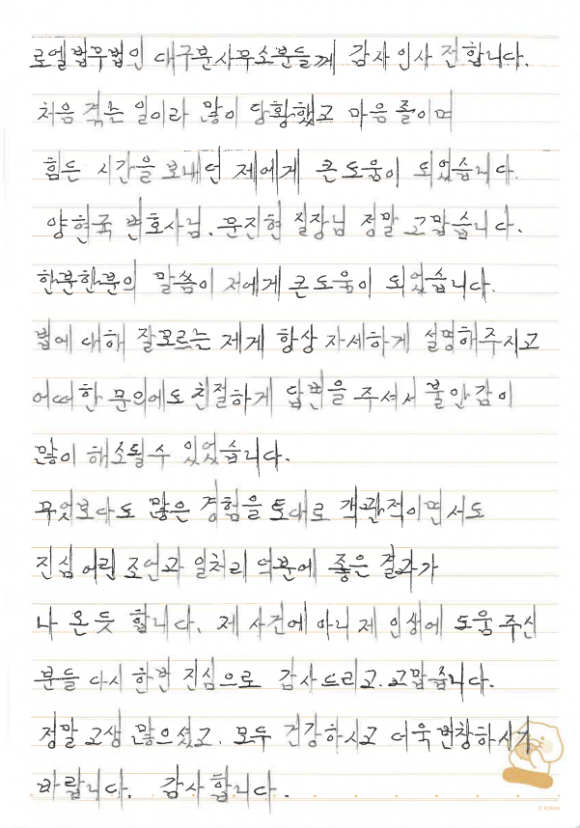 로엘법무법인 대구분사무소분들께 감사 인사 전합니다.
처음 겪는 일이라 많이 당황했고 마음 졸이며
힘든 시간을 보내던 제에게 큰 도움이 되었습니다.
양현국 변호사님, 문진현 실장님 정말 고맙습니다.
한분한분의 말씀이 저에게 큰도움이 되었습니다.
법에 대해 잘모르는 제게 항상 자세하게 설명해주시고
어떠한 문의에도 친절하게 답변을 주셔서 불안감이
많이 해소될수 있었습니다.
무엇보다도 많은 경험을 토대로 객관적이면서도
진심 어린 조언과 일처리 덕분에 좋은 결과가
나 온듯 합니다. 제 사건에 아니 제 인생에 도움 주신
분들 다시 한번 진심으로 감사드리고 고맙습니다.
정말 고생 많으셨고. 모두 건강하시고 더욱 번창하시기
바랍니다. 감사합니다.